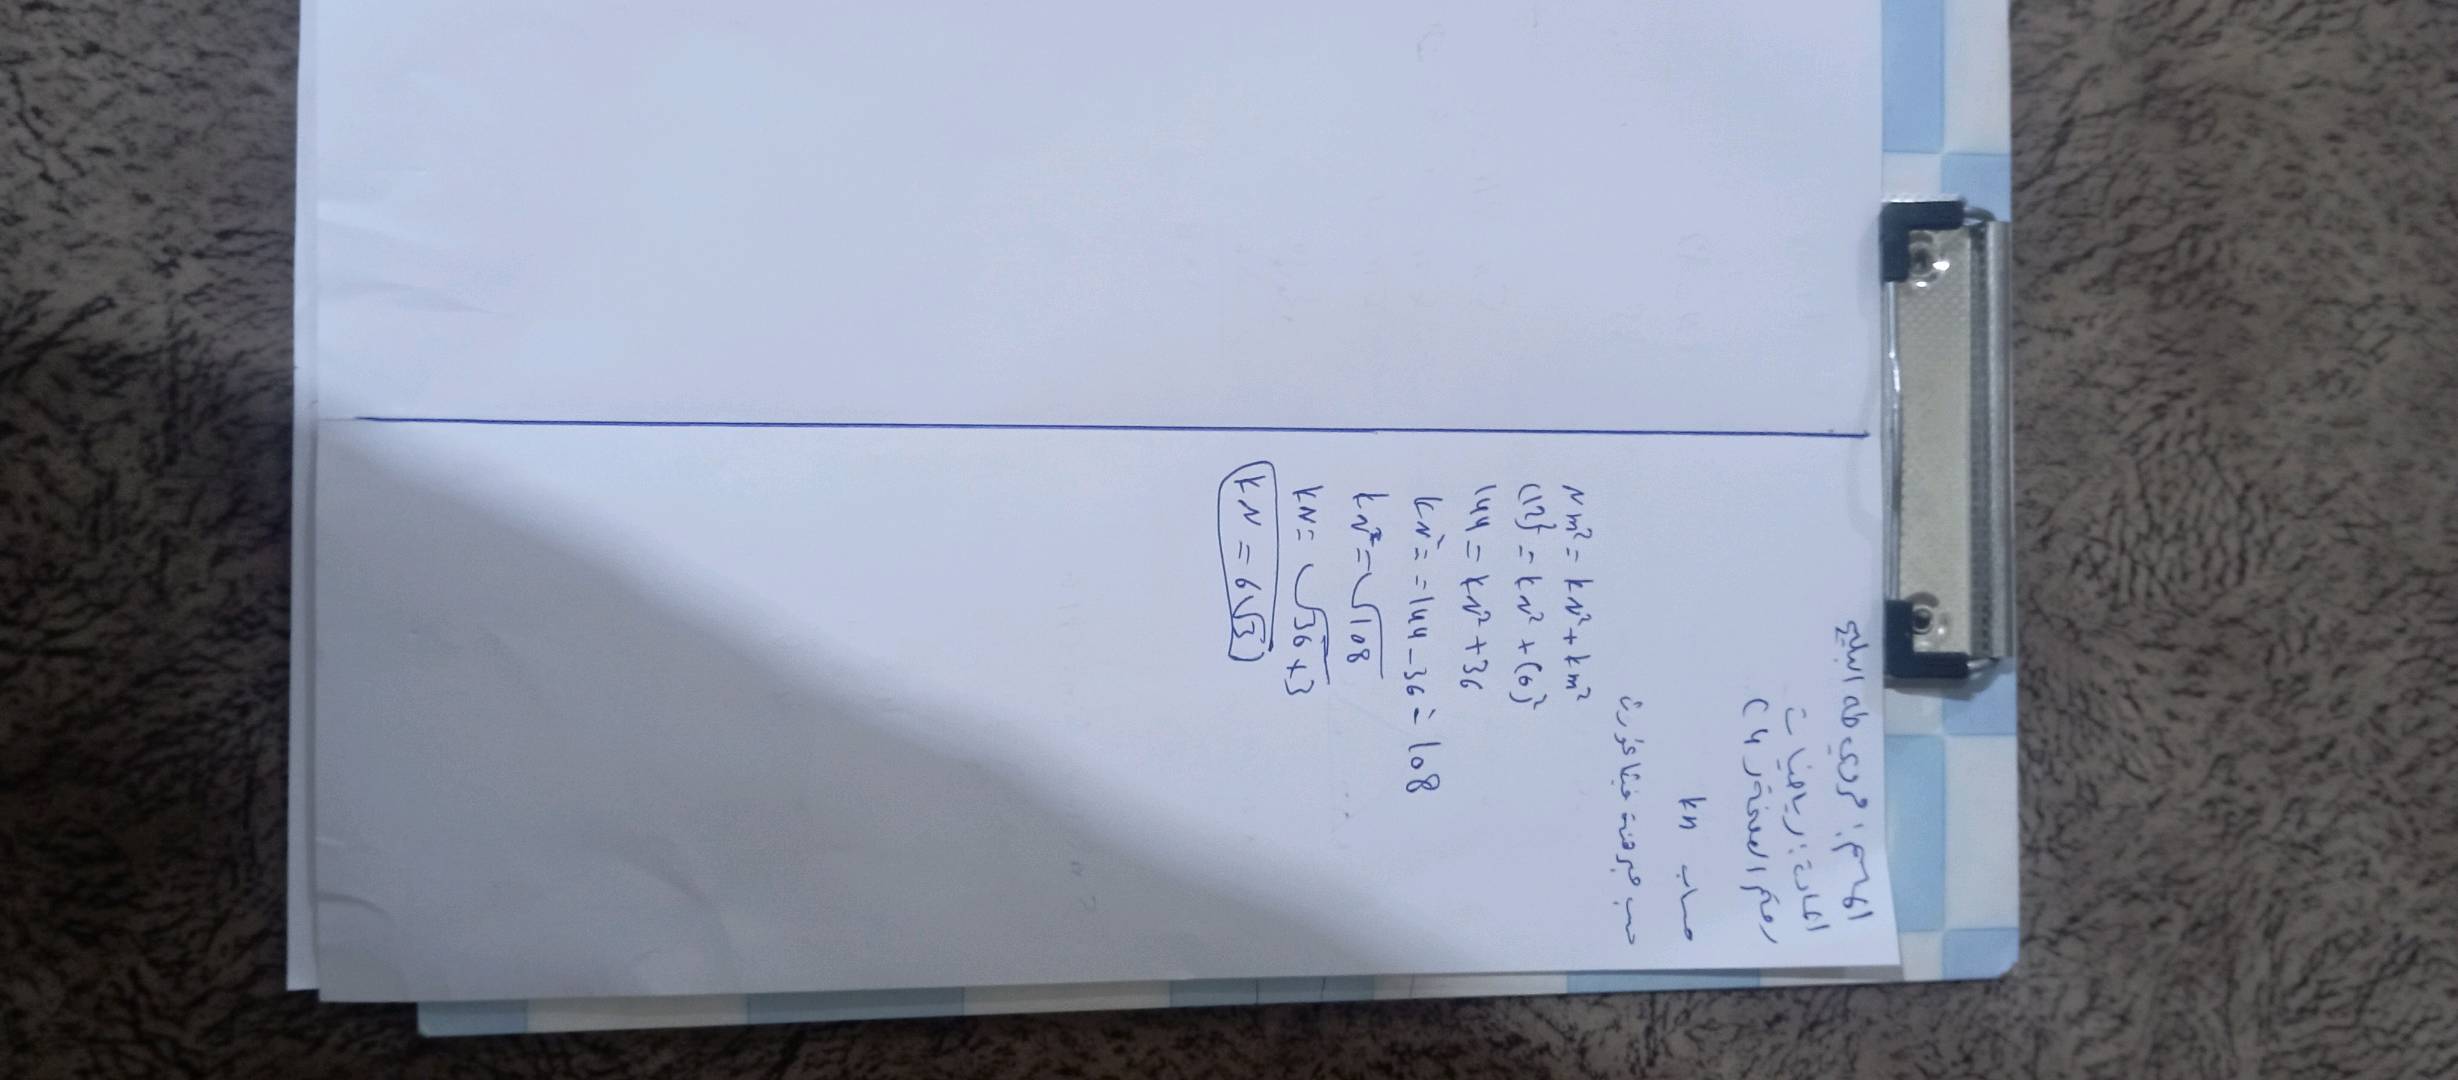 الاسم: فردي طه البليخ
المادة: رياضيات
رقم الصفحة ر 4 )
حساب kn
حسب مبرهنة فيثاغورث
Nm² = kN² + km²
(12)² = kN² + (6)²
144 = kN² + 36
kN² = = 144 - 36 = 108
kN² = √108
kN = √36 × 3
kN = 6√3